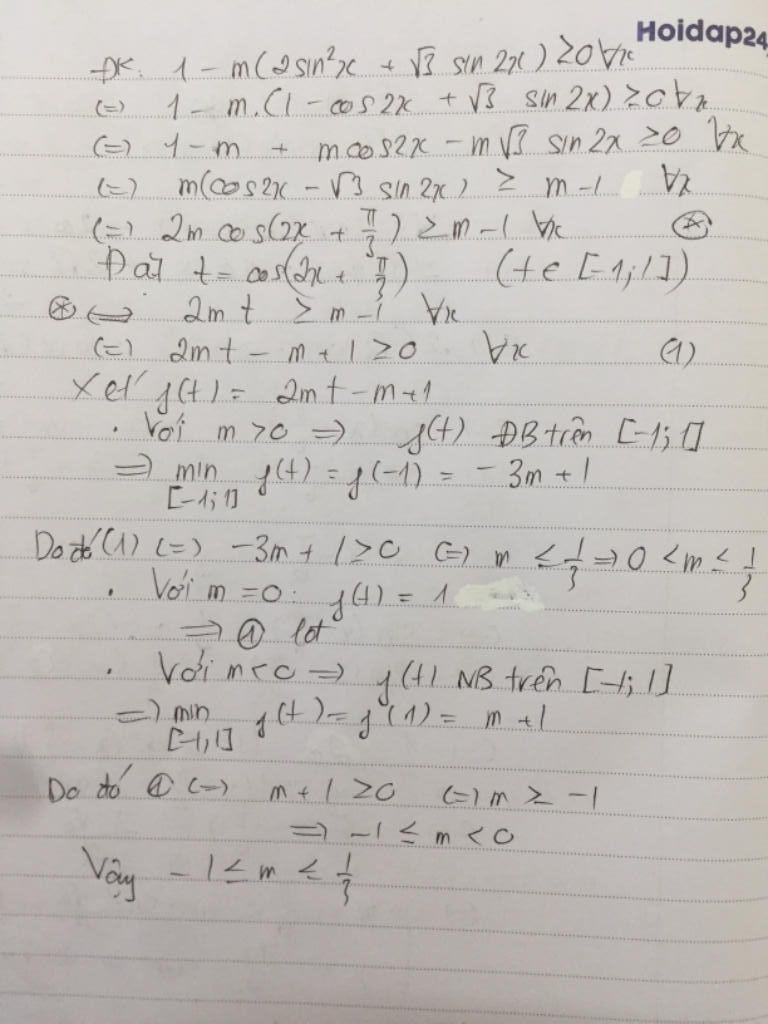 Hoidap24
ĐK: 1 - m(2sin²x + √3 sin 2x) ≥ 0 ∀x
(=) 1 - m.(1 - cos2x + √3 sin 2x) ≥ 0 ∀x
(=) 1 - m + mcos2x - m√3 sin 2x ≥ 0 ∀x
(=) m(cos2x - √3 sin 2x) ≥ m - 1 ∀x
(=) 2m cos(2x + π/3) ≥ m - 1 ∀x (*)
Đặt t = cos(2x + π/3) (t ∈ [-1;1])
(*) ⇔ 2m t ≥ m - 1 ∀x
(=) 2mt - m + 1 ≥ 0 ∀x (1)
Xét f(t) = 2mt - m + 1
. Với m > 0 => f(t) ĐB trên [-1;1]
=> min f(t) = f(-1) = -3m + 1
[-1;1]
Do đó (1) (=) -3m + 1 ≥ 0 (=) m ≤ 1/3 => 0 < m ≤ 1/3
. Với m = 0: f(t) = 1
=> ①
. Với m < 0 => f(t) NB trên [-1;1]
=> min f(t) = f(1) = m + 1
[-1;1]
Do đó ① (=) m + 1 ≥ 0 (=) m ≥ -1
=> -1 ≤ m < 0
Vậy -1 ≤ m ≤ 1/3